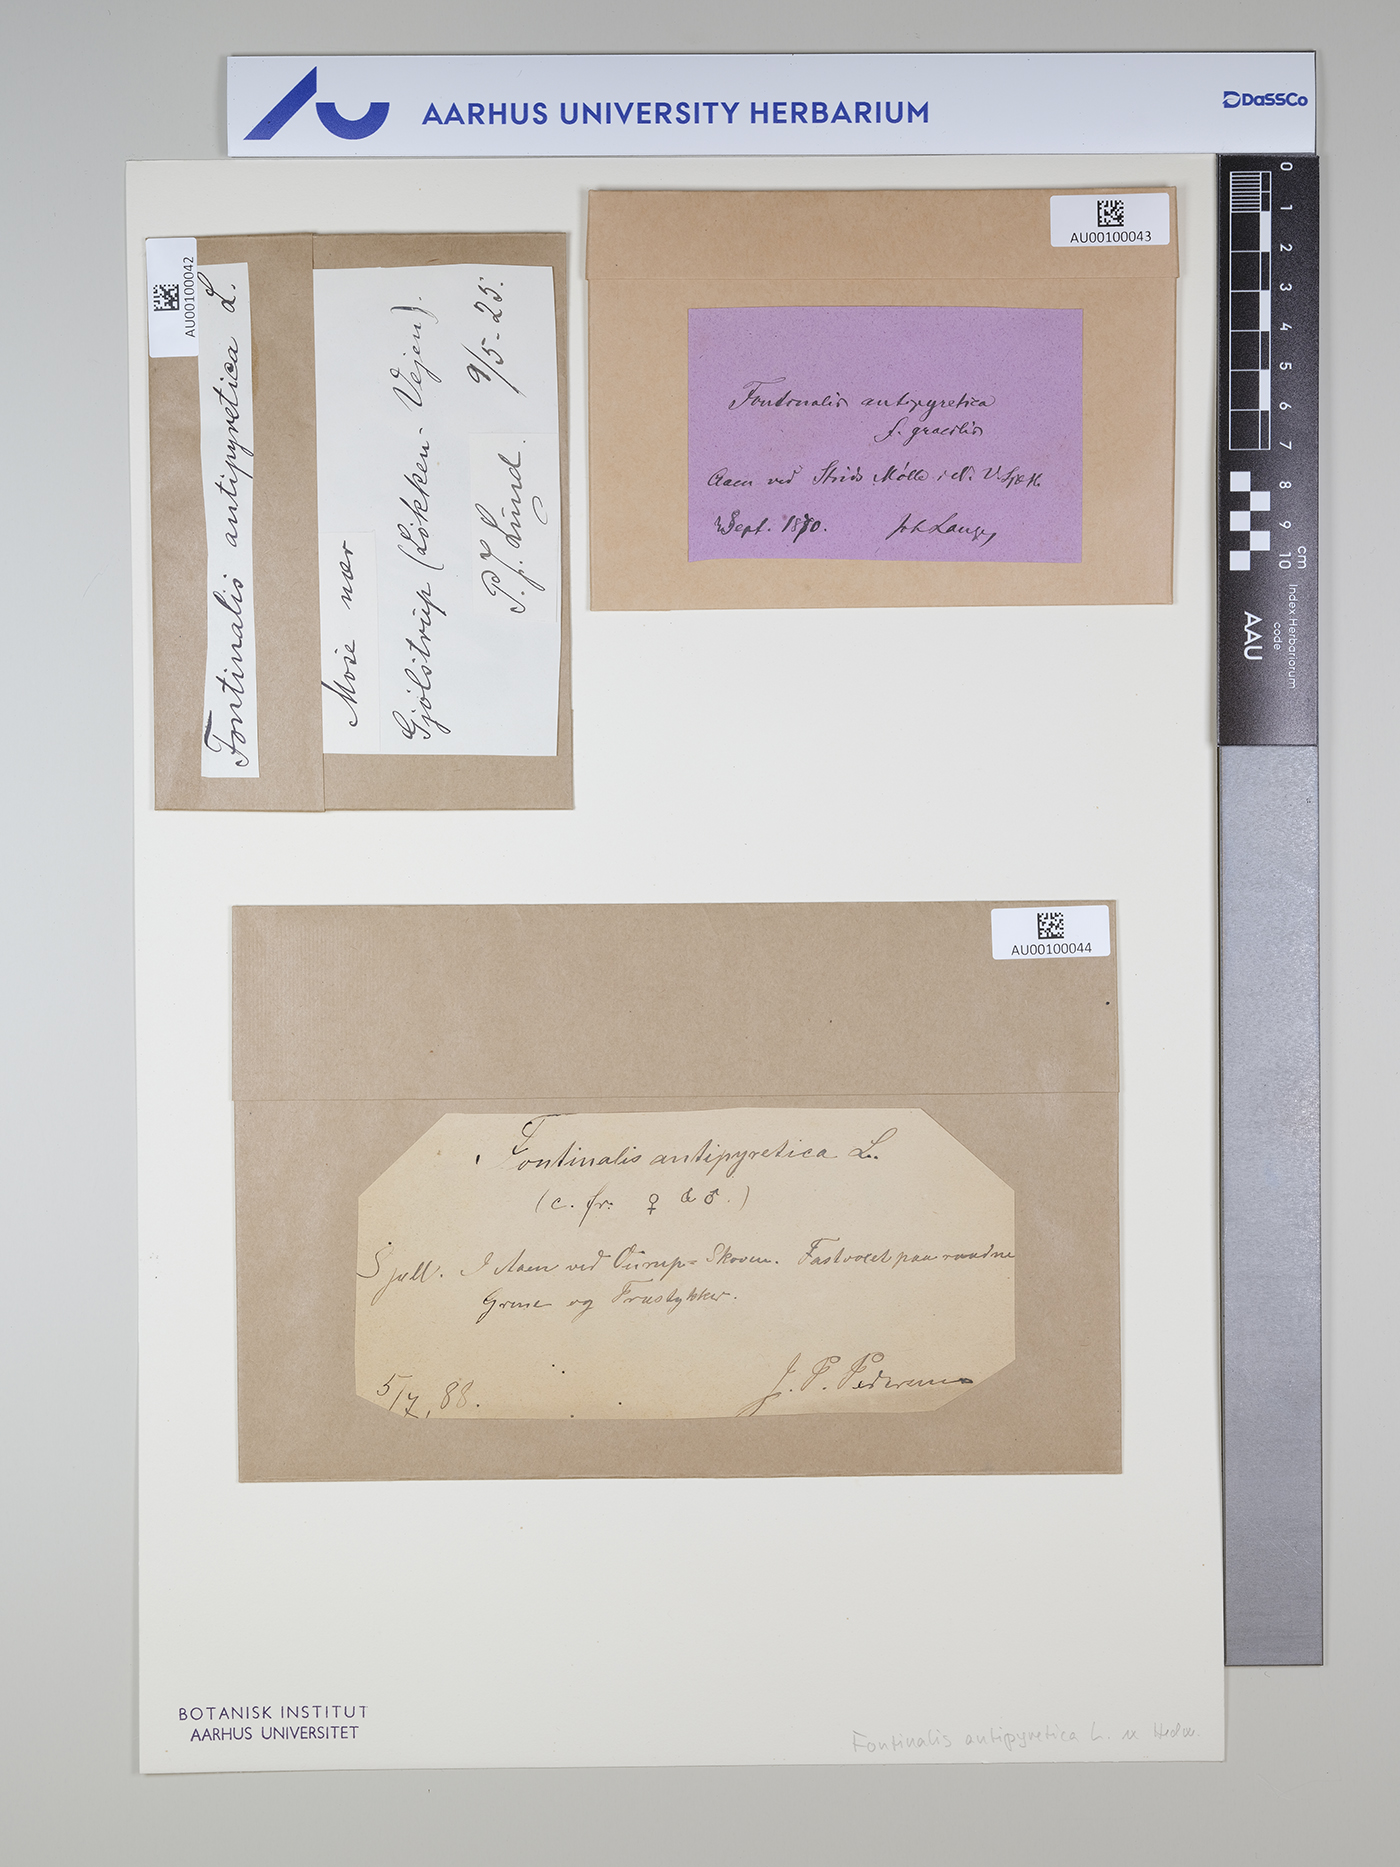 AARHUS UNIVERSITY HERBARIUM
DaSSCo
AU00100042
Fontinalis antipyretica L.
Mose nær
Gjølstrup (Løkken-Vejen).
9/5-25.
P. J. Lund.
AU00100043
Fontinalis antipyretica
f. gracilis
Aaen ved Strids Mølle
Sept. 1870. Joh Lange
AU00100044
Fontinalis antipyretica L.
(c. fr. ♀ & ♂.)
Sjæll. I Aaen ved Ourup-Skoven. Fastvoxet paa raadne
Grene og Træstykker.
5/7, 88. J. P. Pedersen
0 1 2 3 4 5 6 7 8 9 10
cm
Index Herbariorum
code
AAU
BOTANISK INSTITUT
AARHUS UNIVERSITET
Fontinalis antipyretica L. ex Hedw.